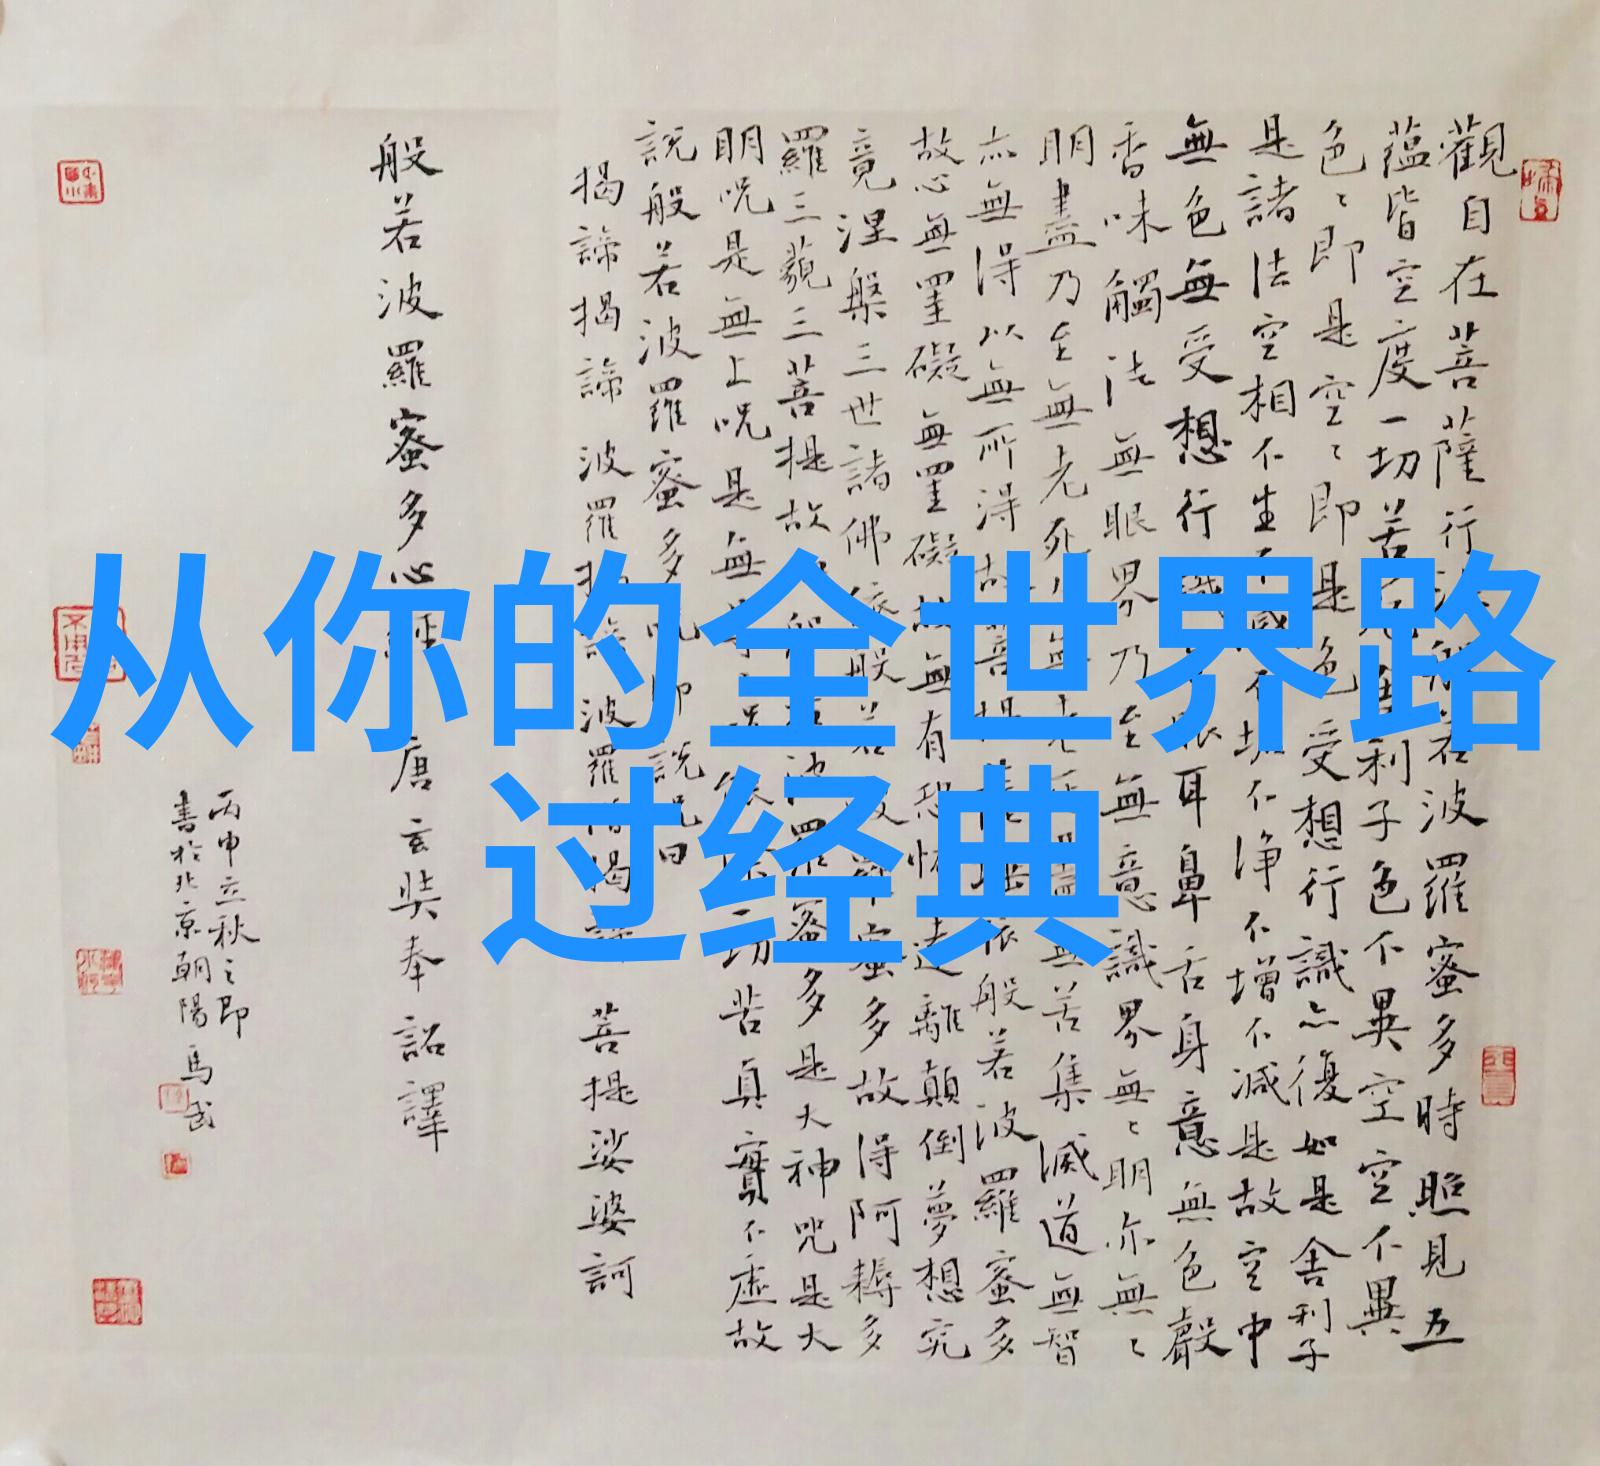 从你的全世界路
过经典
觀自在菩薩行深般若波羅蜜多時照見五
蘊皆空度一切苦厄舍利子色不異空空不異
色〻即是空〻即是色受想行識亦復如是舍利子
是諸法空相不生不滅不垢不淨不增不減是故空中
無色無受想行識無眼耳鼻舌身意無色聲
香味觸法無眼界乃至無意識界無〻明亦無〻
明盡乃至無老死亦無老死盡無苦集滅道無智
亦無得以無所得故菩提薩埵依般若波羅蜜多
故心無罣礙無罣礙故無有恐怖遠離顛倒夢想究
竟涅槃三世諸佛依般若波羅蜜多故得阿耨多
羅三藐三菩提故知般若波羅蜜多是大神咒是大
明呪是無上呪是無等等呪能除一切苦真實不虛故
說般若波羅蜜多呪即說呪曰
揭諦揭諦 波羅揭諦 波羅僧揭諦 菩提娑婆訶
般若波羅蜜多心經 唐玄奘奉詔譯
丙申立秋之即
書於北京朝陽 馬